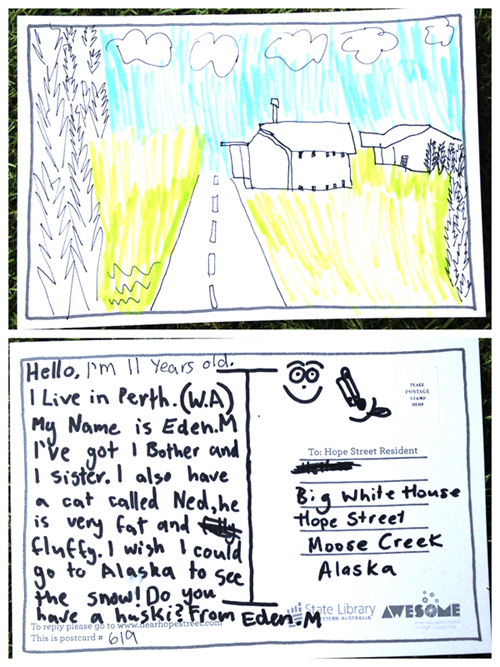 Hello, I'm 11 years old.
I Live in Perth.(W.A)
My Name is Eden.M
I've got 1 Bother and
1 sister. I also have
a cat called Ned, he
is very fat and
fluffy. I wish I could
go to Alaska to see
the snow! Do you
have a huski? From Eden.M
To reply please go to www.dearhopestreet.com
This is postcard # 619
PLACE
POSTAGE
STAMP
HERE
To: Hope Street Resident
Big White House
Hope Street
Moose Creek
Alaska
State Library
WESTERN AUSTRALIA
AWESOME